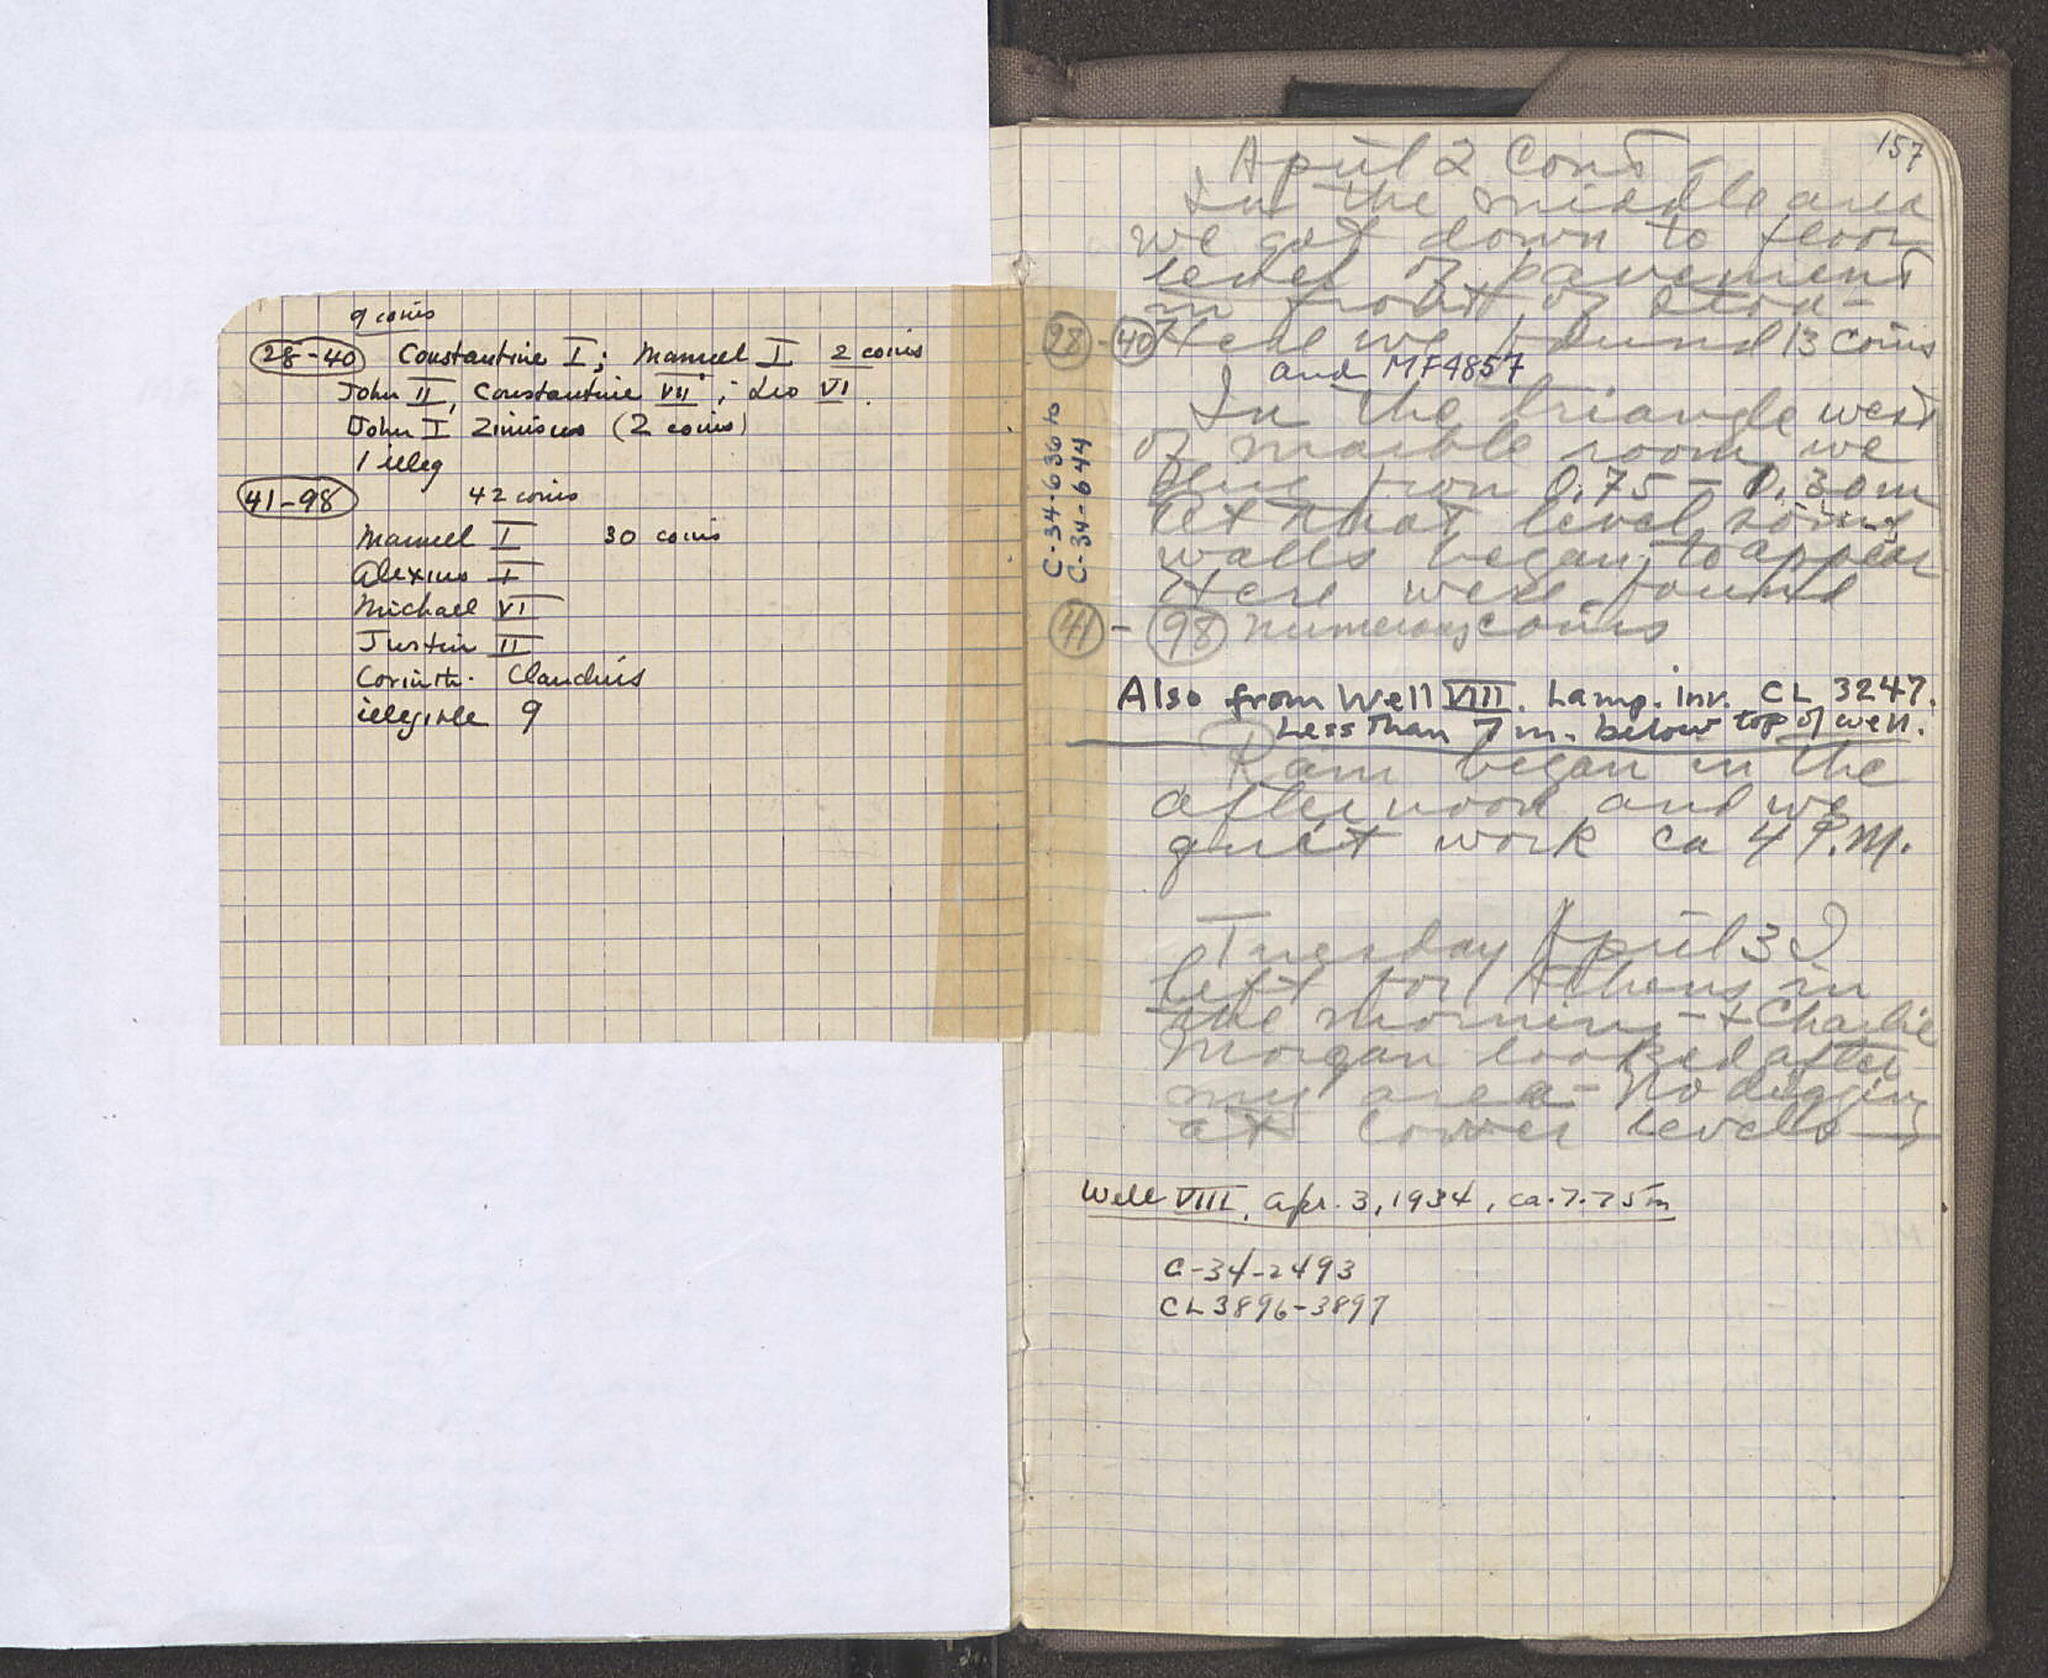 9 coins
28-40 Constantine I; Manuel I 2 coins
John II, Constantine VII; Leo VI.
John I Zimisces (2 coins)
1 illeg
41-98 42 coins
Manuel I 30 coins
Alexius I
Michael VI
Justin II
Corinth. Claudius
illegible 9
157
April 2 Cont
In the middle area
we got down to floor
level of pavement
in front of stoa-
28 - 40 Here we found 13 coins
and MF4857
C-34-636 to
C-34-644
In the triangle west
of marble room we
dug from 0.75 - 0.30m
At that level some
walls began to appear
Here were found
41 - 98 numerous coins
Also from Well VIII. Lamp. Inv. CL 3247.
Less than 7 m. below top of well.
Rain began in the
afternoon and we
quit work ca 4 P.M.
Tuesday April 3 I
left for Athens in
the morning - + Charlie
Morgan looked after
my area - No digging
at lower levels -
Well VIII, Apr. 3, 1934, ca. 7.75m
C-34-2493
CL 3896-3897